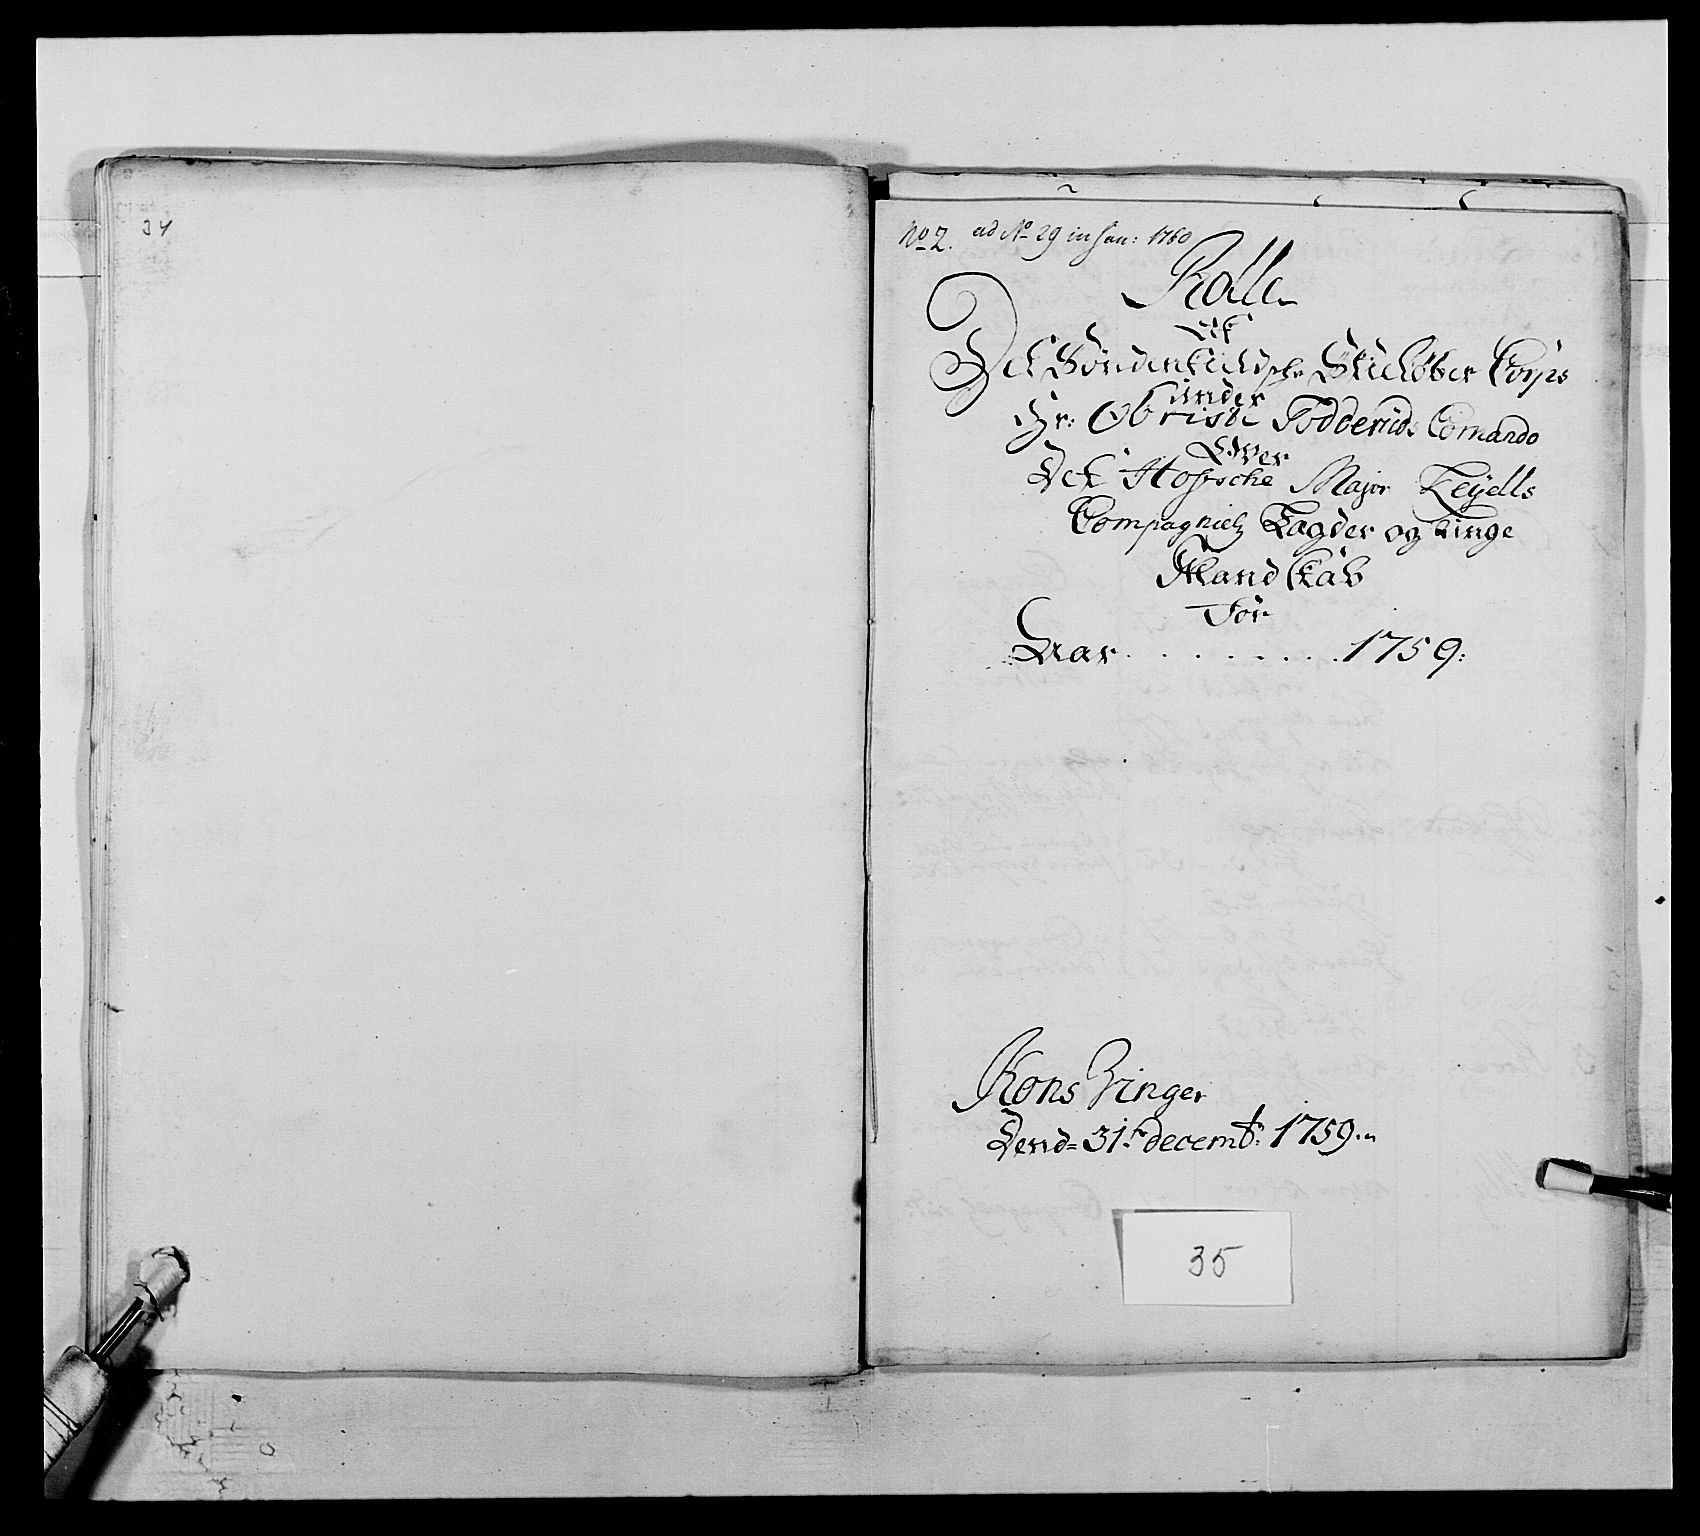 34
No 2. ad No 29 in Jan: 1760
Rolle
Af
Det Søndenfieldsche Skieløber Corps
under
Hr: Obriste Fodderuds Comando
Over
Det Hofsche Major Zeyells
Compagniets Tagder og Ringe
Mandskab
For
Aar . . . . . . . . . 1759:
Kons Vinger
Dend= 31te decembr: 1759.
35